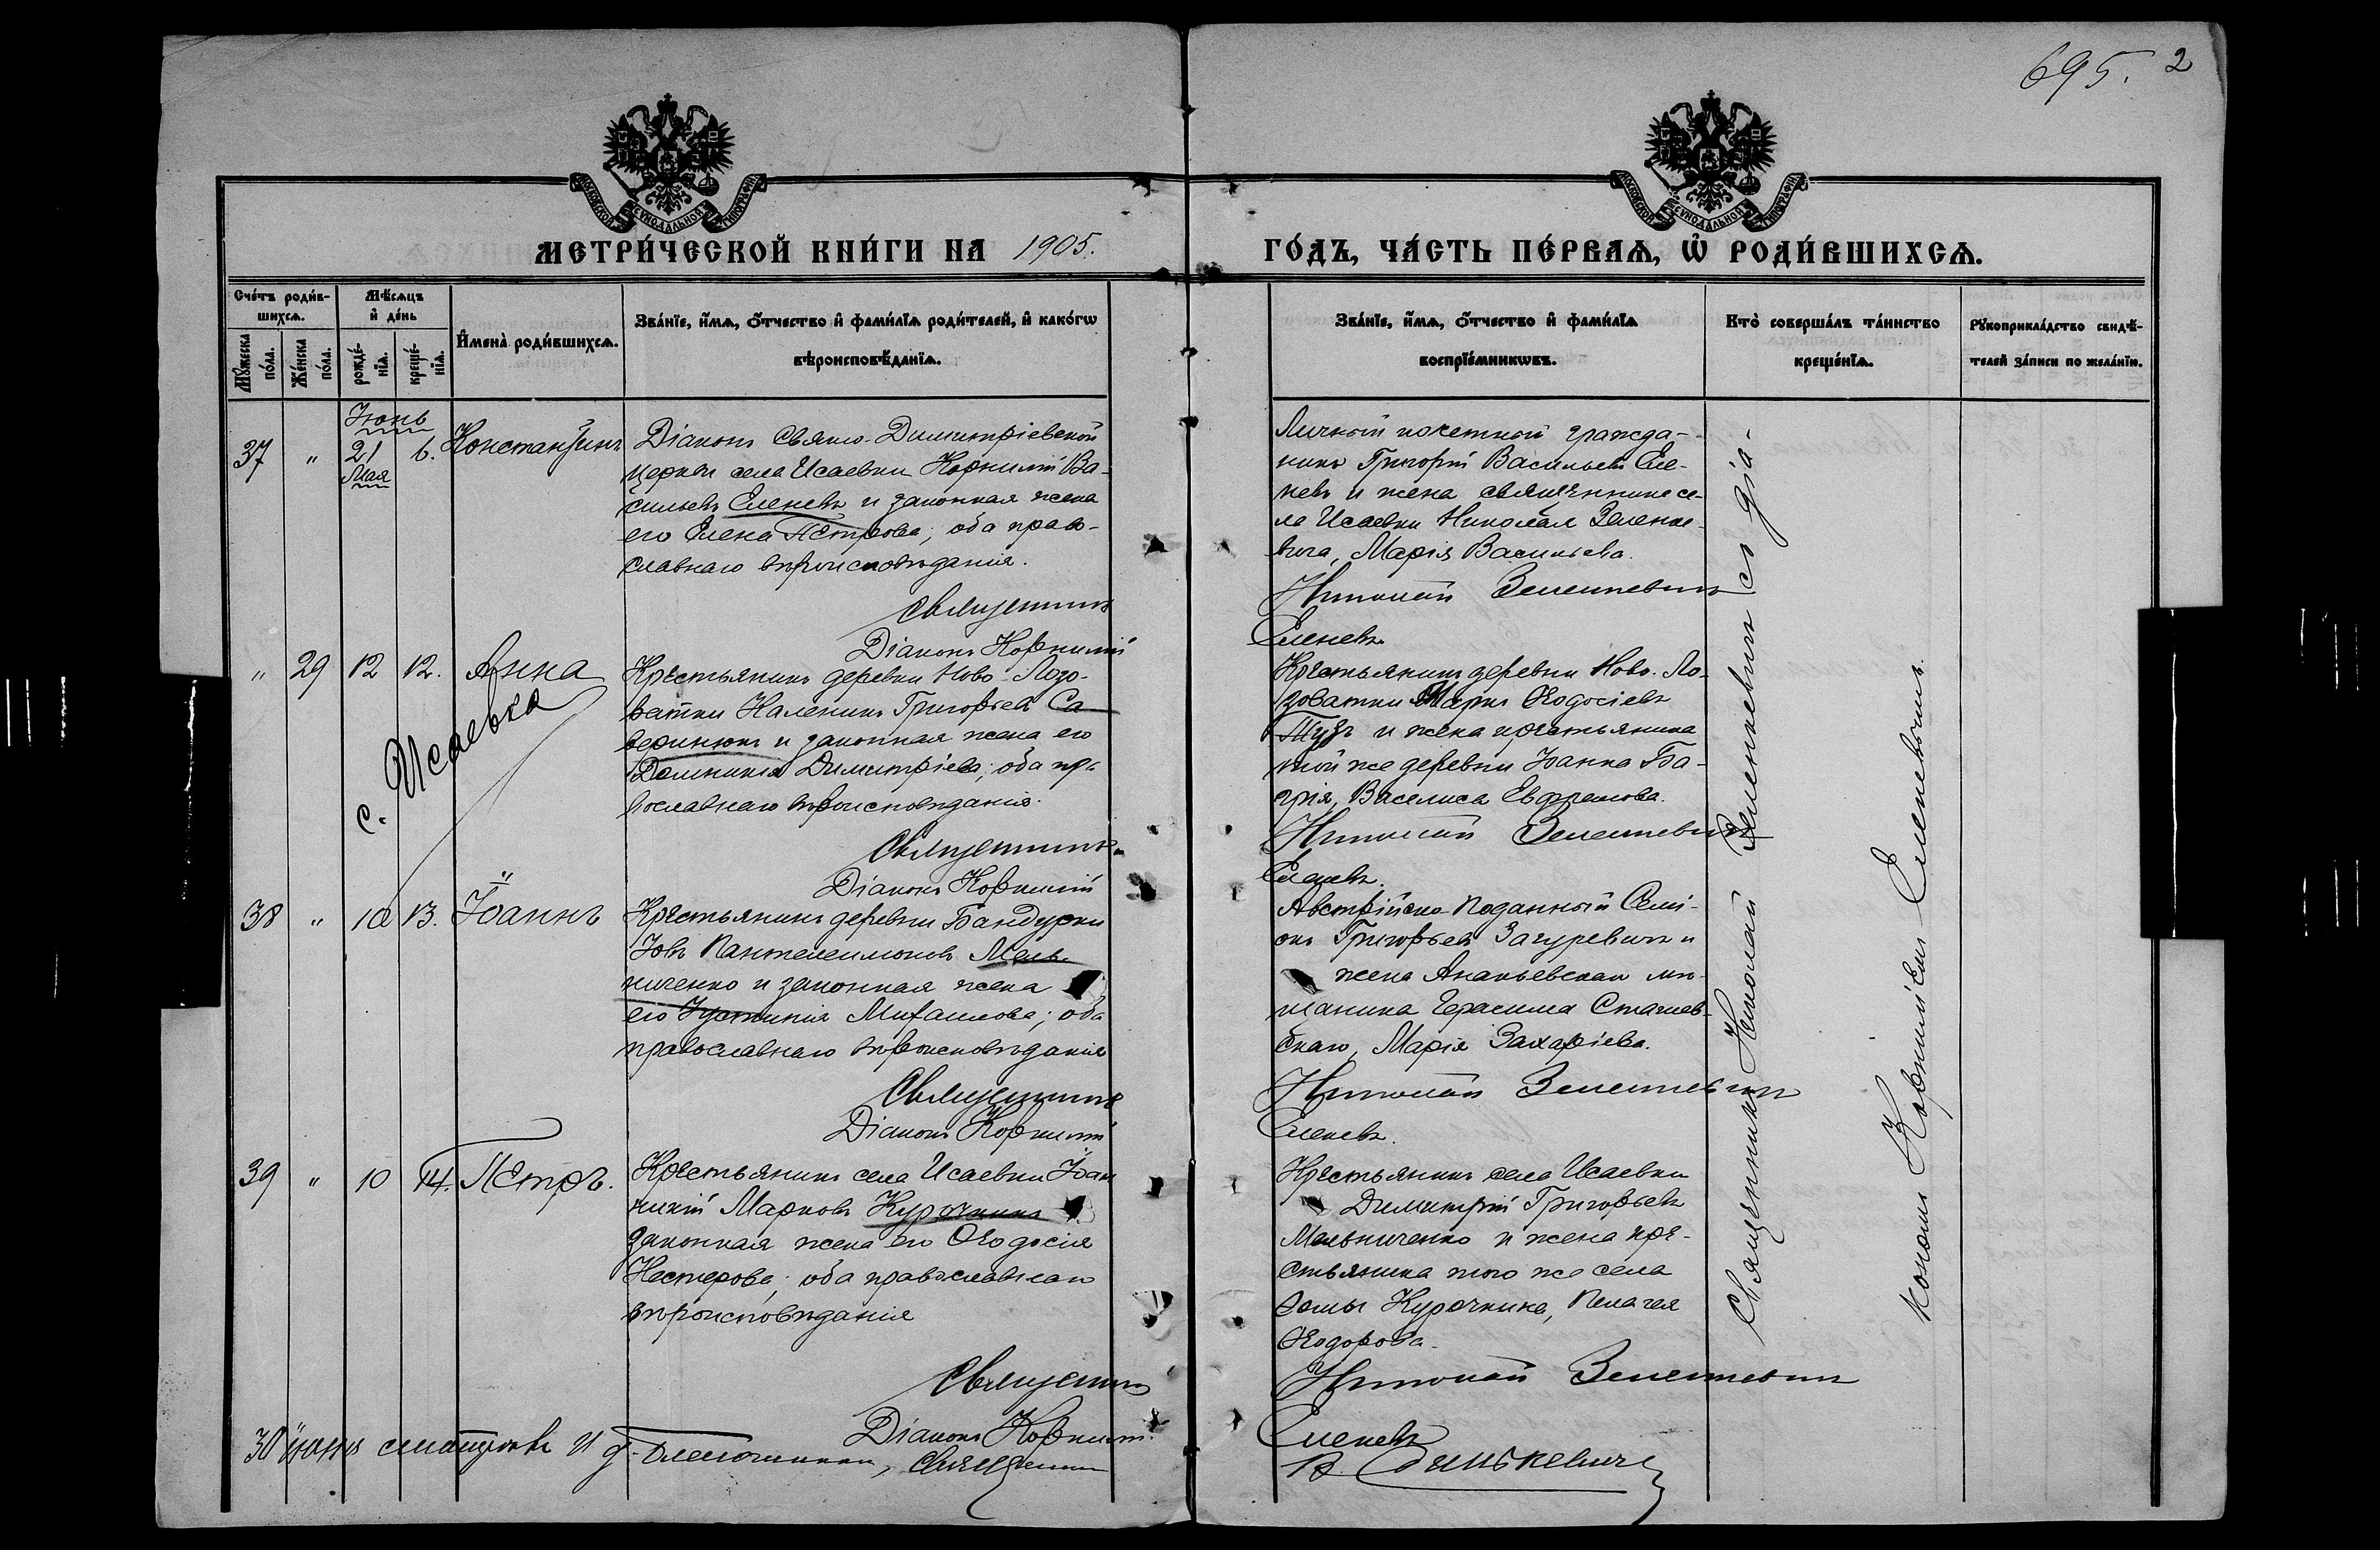 695. 2
МОСКОВСКОЙ СѴНОДАЛЬНОЙ ТИПОГРАФІИ
МОСКОВСКОЙ СѴНОДАЛЬНОЙ ТИПОГРАФІИ
МЕТРИ́ЧЕСКОЙ КНИ́ГИ НА 1905.
ГО́ДЪ, ЧА́СТЬ ПЕ́РВАѦ, Ѡ҆ РОДИ́ВШИХСѦ.
Сче́тъ роди́в-
шихсѧ.
Мꙋ́жеска по́ла.
Же́нска по́ла.
Мѣ́сѧцъ
и҆ де́нь
рожде́-
нїѧ.
креще́-
нїѧ.
И҆мена̀ роди́вшихсѧ.
Зва́нїе, и҆́мѧ, ѻ҆́тчество и҆ фами́лїѧ роди́телей, и҆ како́гѡ
вѣроисповѣ́данїѧ.
Зва́нїе, и҆́мѧ, ѻ҆́тчество и҆ фами́лїѧ
воспрїе́мникѡвъ.
Кто̀ соверша́лъ та́инство
креще́нїѧ.
Рꙋкоприкла́дство свидѣ́-
телей за́писи по жела́нїю.
Іюнь
37 " 21 6. Константинъ
Мая
Діаконъ Свято-Димитріевской
церкви села Исаевки Корнилій Ва-
сильевъ Еленевъ и законная жена
его Елена Петрова; оба право-
славнаго вѣроисповѣданія.
Священникъ
Діаконъ Корнилій
Личный почетный гражда-
нинъ Григорій Васильевъ Еле-
невъ и жена священника се-
ла Исаевки Николая Зеленке-
вича, Марія Васильева.
Николай Зеленкевичъ
Еленевъ.
" 29 12 12. Анна
с. Исаевка
Крестьянинъ деревни Ново-Лозо-
ватки Каленикъ Григорьевъ Са
веринюкъ и законная жена его
Домникія Димитріева; оба пра
вославнаго вѣроисповѣданія.
Священникъ
Діаконъ Корнилій
Крестьянинъ деревни Ново-Ло-
зоватки Маркъ Ѳеодосіевъ
Тузъ и жена крестьянина
той же деревни Іоанна Ба-
грія, Василиса Евфремова.
Николай Зеленкевичъ
Еленевъ.
38 " 10 13. Іоаннъ
Крестьянинъ деревни Бандурки
Іовъ Пантелеимоновъ Мель-
ниченко и законная жена
его Іустинія Михаилова; оба
православнаго вѣроисповѣданія
Священникъ
Діаконъ Корнилій
Австрійско-Поданный Семі-
онъ Григорьевъ Загуревичъ и
жена Ананьевскаго мѣ-
щанина Герасима Сташев-
скаго, Марія Захаріева.
Николай Зеленкевичъ
Еленевъ.
39 " 10 14. Петръ.
Крестьянинъ села Исаевки Іоан
никій Марковъ Курочкинъ
законная жена его Ѳеодосія
Нестерова; оба православнаго
вѣроисповѣданія
Священникъ
Діаконъ Корнилій.
Крестьянинъ села Исаевки
Димитрій Григорьевъ
Мельниченко и жена кре-
стьянина того же села
Ѳомы Курочкина, Пелагея
Ѳеодорова.
Николай Зеленкевичъ
Еленевъ
Священникъ Николай Зеленкевичъ съ діа-
кономъ Корниліемъ Еленевымъ.
30 іюня смотрѣлъ и д. Благочиннаго, Священникъ